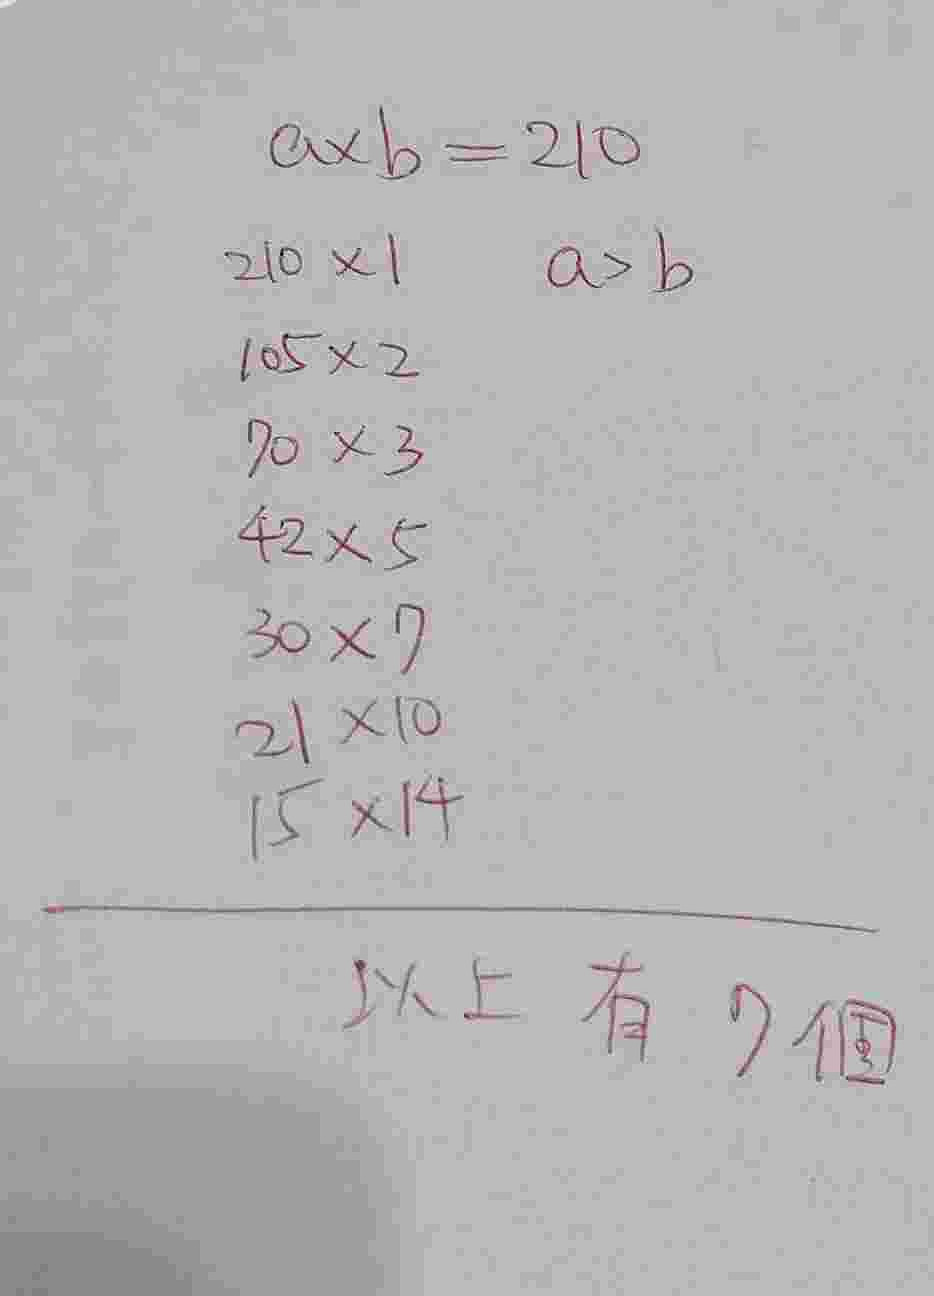 a×b=210
210×1 a>b
105×2
70×3
42×5
30×7
21×10
15×14
以上有7個